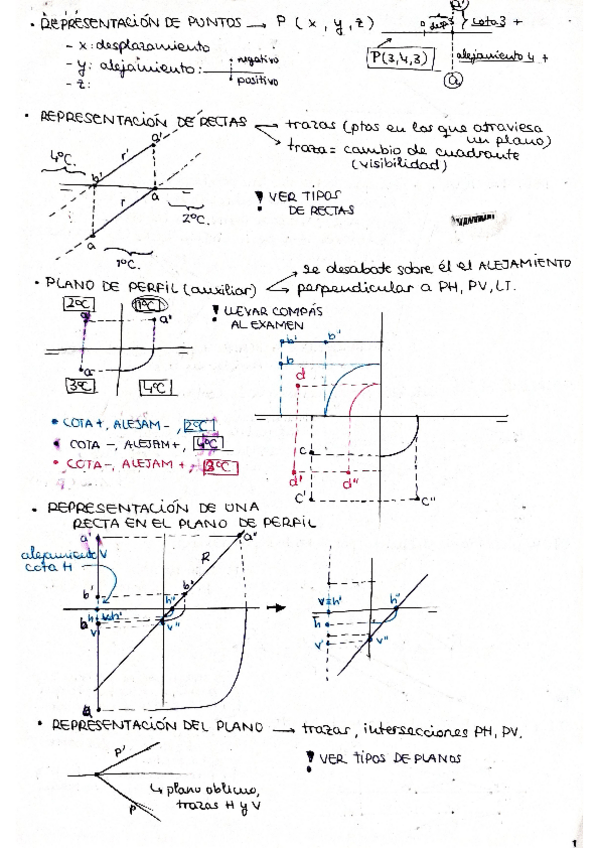 • REPRESENTACIÓN DE PUNTOS → P (x, y, z)
- x: desplazamiento
- y: alejamiento:
- z:
negativo
positivo
P(3,4,3)
a'
desp 3
cota 3 +
alejamiento 4 +
a
• REPRESENTACIÓN DE RECTAS
trazas (ptos en los que atraviesa
un plano)
traza = cambio de cuadrante
(visibilidad)
4ºC.
r'
a'
b'
r
a
2ºC.
a
1ºC.
! VER TIPOS
DE RECTAS
• PLANO DE PERFIL (auxiliar)
se desabate sobre él el ALEJAMIENTO
perpendicular a PH, PV, LT.
2ºC
1ºC
a'
a
3ºC
4ºC
! LLEVAR COMPÁS
AL EXAMEN
b'
b"
b
d
c
d'
d"
c'
c"
• COTA +, ALEJAM -, 2ºC
• COTA -, ALEJAM +, 4ºC
• COTA -, ALEJAM +, 3ºC
• REPRESENTACIÓN DE UNA
RECTA EN EL PLANO DE PERFIL
a'
a"
alejamiento V
cota H
R
b'
b"
h"
h
v
v"
v≡h'
h"
h
v'
v"
• REPRESENTACIÓN DEL PLANO → trazas, intersecciones PH, PV.
! VER TIPOS DE PLANOS
P'
↳ plano oblicuo,
trazas H y V
P
1